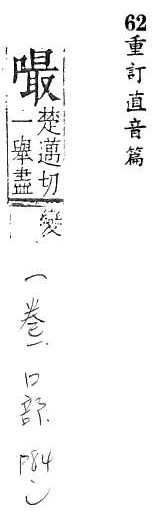 62重訂直音篇
嘬
楚邁切
一舉盡
臠
一卷一 口部 P84